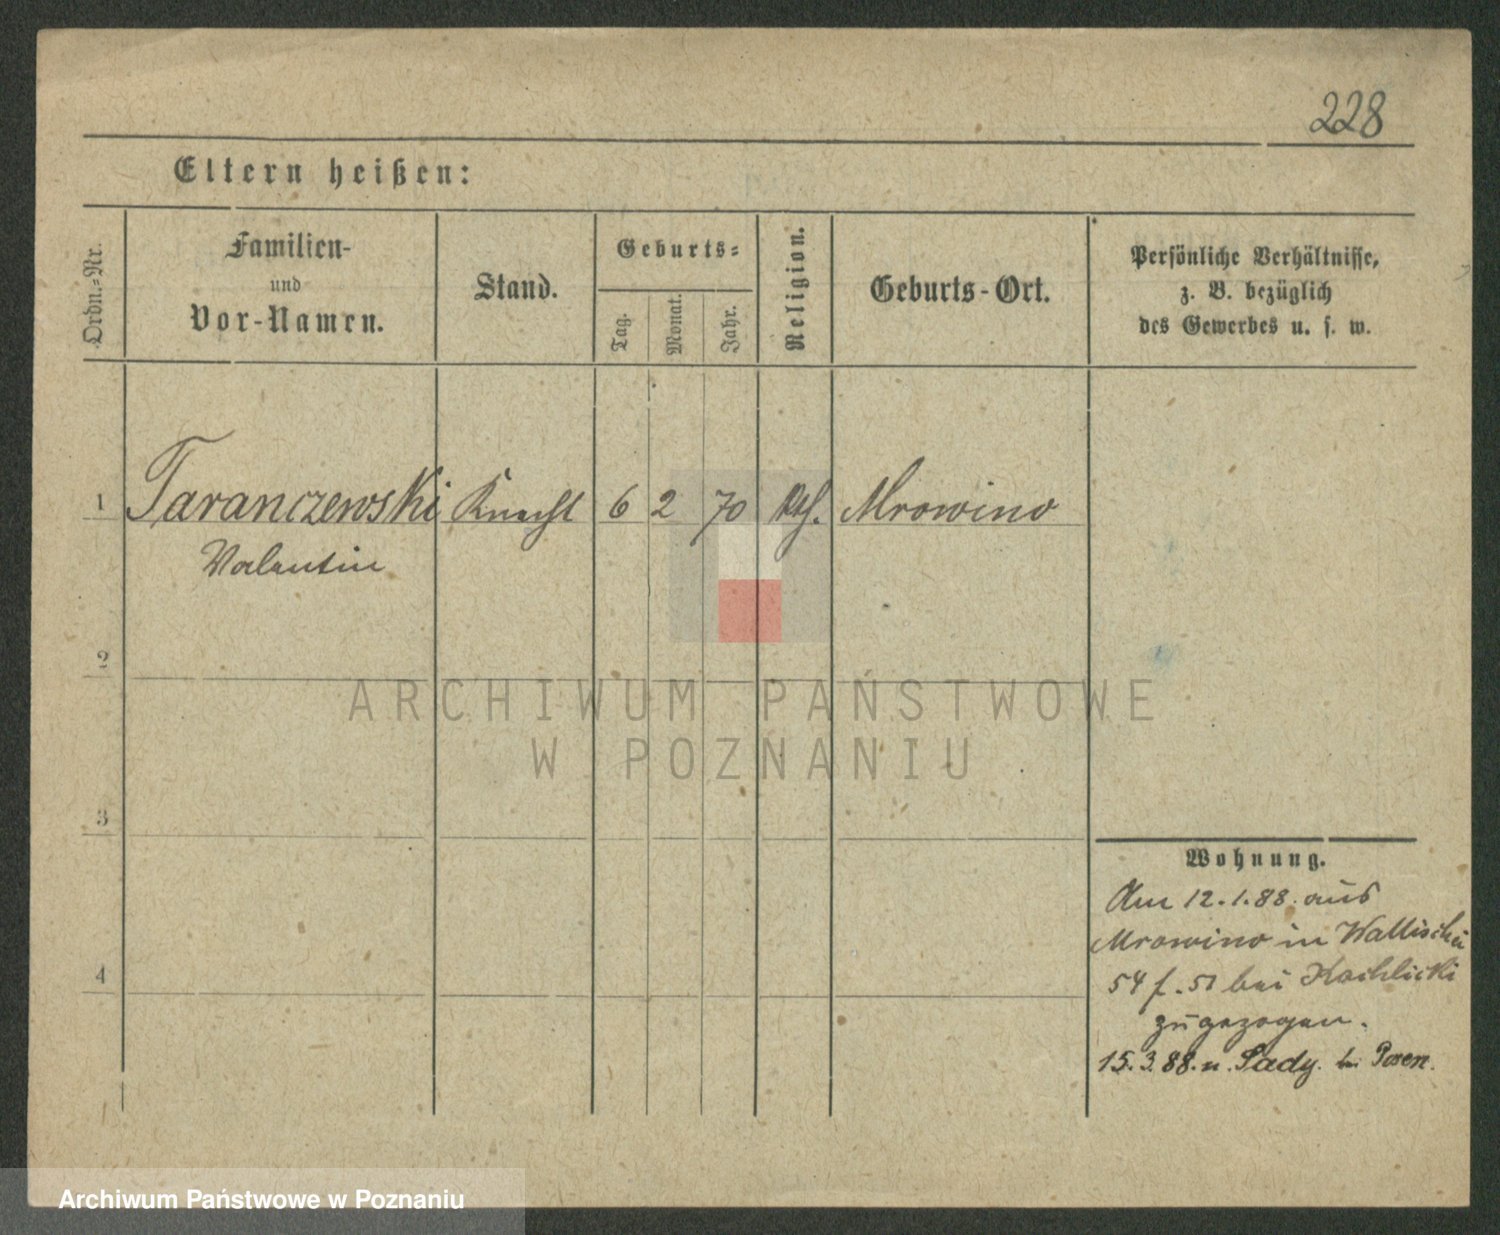 228
Eltern heißen:
Ordn.-Nr.
Familien-
und
Vor-Namen.
Stand.
Geburts-
Tag.
Monat.
Jahr.
Religion.
Geburts-Ort.
Persönliche Verhältnisse,
z. B. bezüglich
des Gewerbes u. s. w.
1 Taranczewski Knecht 6 2 70 kth. Mrowino
Valentin
2
3
4
Wohnung.
Am 12.1.88. aus
Mrowino in Wallischei
54 bei
zugezogen.
15.3.88. n. Sady. bei Posen.
ARCHIWUM PAŃSTWOWE
W POZNANIU
Archiwum Państwowe w Poznaniu